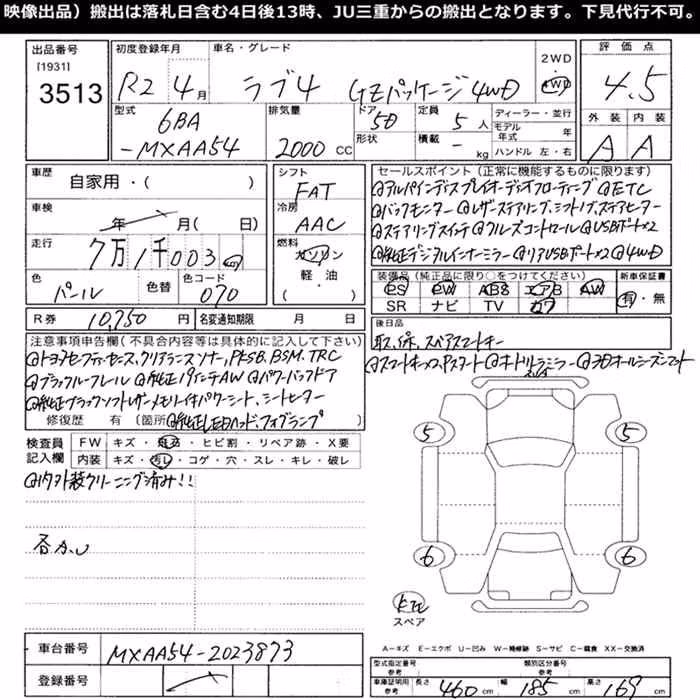 映像出品）搬出は落札日含む4日後13時、JU三重からの搬出となります。下見代行不可。
出品番号 初度登録年月 車名・グレード 2WD 評価点
[1931]
3513 R2 4月 ラブ4 Gzパッケージ4WD 4WD 4.5
型式 排気量 ドア 定員 ディーラー・並行 外装 内装
6BA 5D 5人 モデル年式 年
-MXAA54 2000 CC 形状 積載 - kg ハンドル 左・右 A A
車歴 自家用・( ) シフト FAT セールスポイント（正常に機能するものに限ります）
車検 年 月( 日) 冷房 AAC @アルパインディスプレイオーディオフローティング @ETC
走行 7万1千003km 燃料 ガソリン 軽・油 ( ) @バックモニター @レザーステアリング、シフトノブ、ステアヒーター
@ステアリングスイッチ @クルーズコントロール @USBポート×2
@純正デジタルインナーミラー @リアUSBポート×2 @4WD
色 パール 色替 色コード 070 装備品（純正品に限り○をつけてください） 新車保証書
PS PW ABS エアB AW 有・無
SR ナビ TV カワ
R券 10,750円 名変通知期限 月 日 後日品
注意事項申告欄（不具合内容等は具体的に記入して下さい） 取、保、スペアスマートキー
@トヨタセーフティーセンス、クリアランスソナー、PKSB、BSM、TRC @スマートキー×2、Pスタート @オートドアミラー @3Dオールシーズンマット
@ブラックルーフレール @純正19インチAW @パワーバックドア
@純正ブラックソフトレザーメモリイ付パワーシート、シートヒーター
修復歴 有（箇所 @純正LEDヘッド、フォグランプ
検査員 FW キズ・飛石・ヒビ割・リペア跡・X要
記入欄 内装 キズ・汚レ・コゲ・穴・スレ・キレ・破レ
@内外装クリーニング済み!!
5 5
6 6
スペア
A－キズ E－エクボ U－凹み W－補修跡 S－サビ C－腐食 XX－交換済
車台番号 MXAA54-2023873 型式指定番号 参考 類別区分番号 参考
登録番号 車庫証明用 参考 長さ 460cm 幅 185cm 高さ 169cm